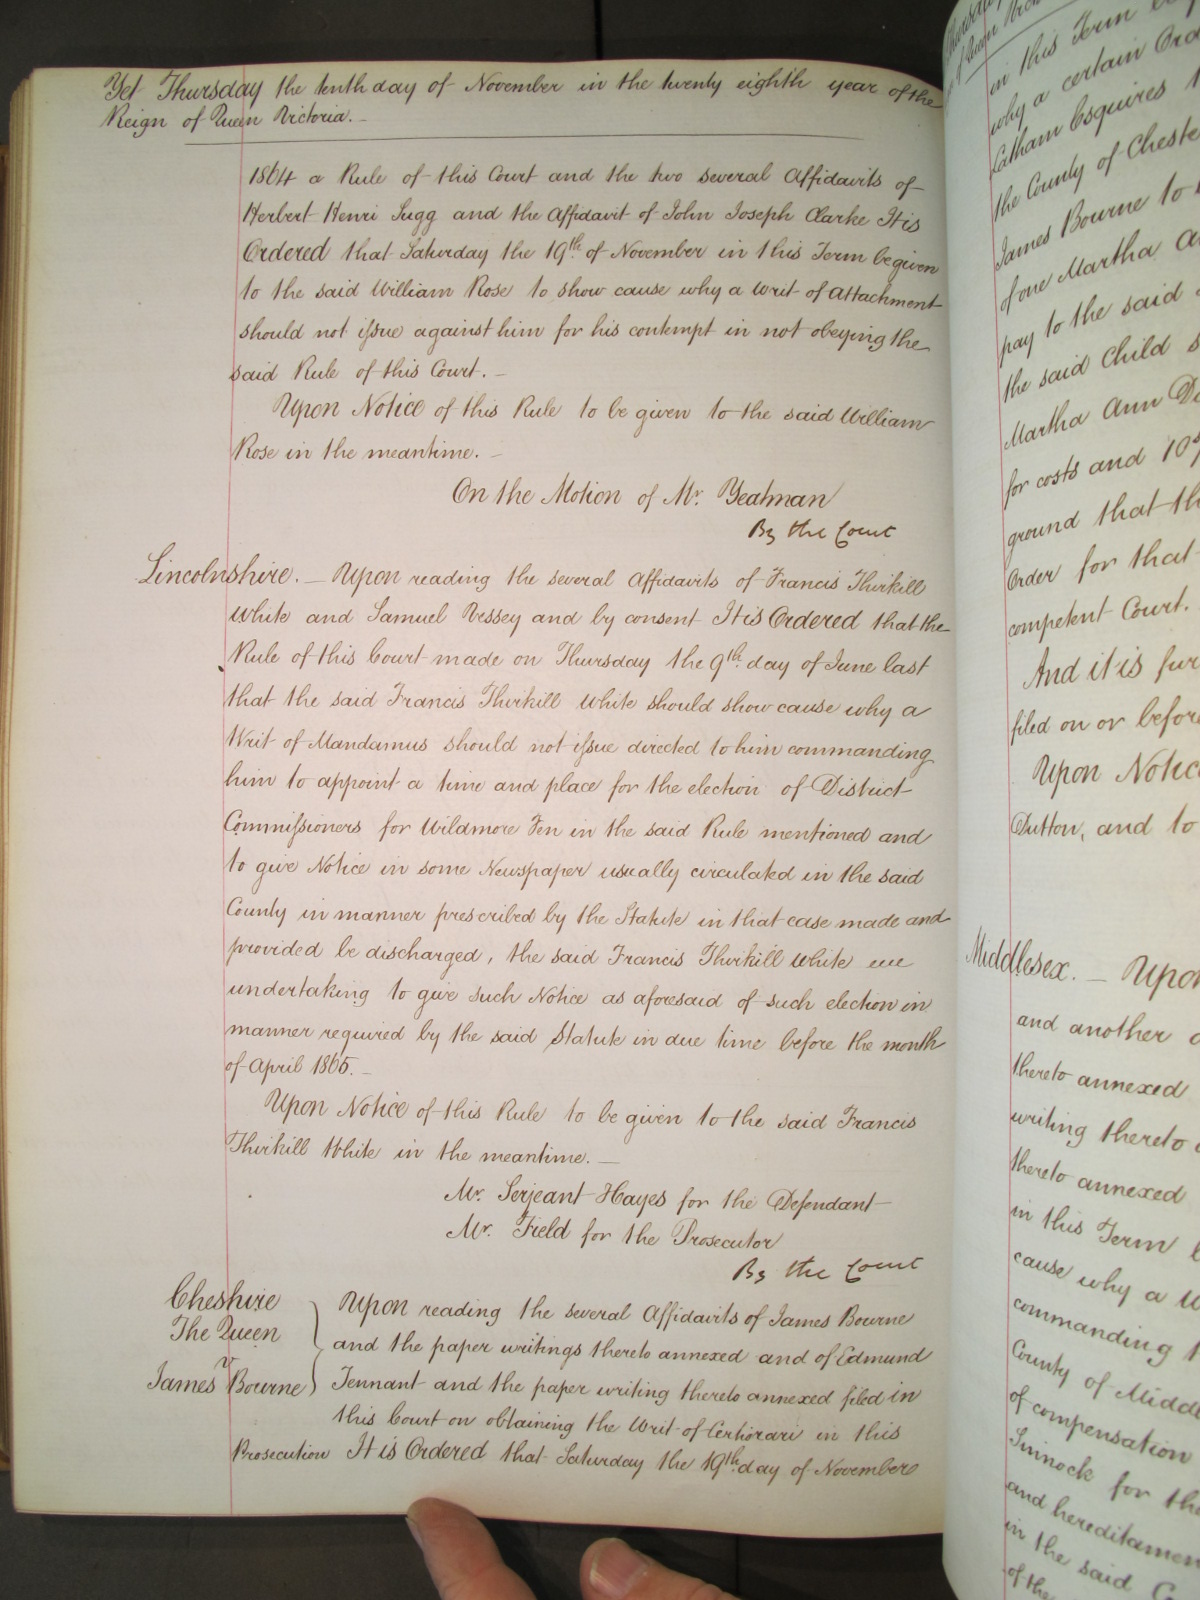 Yet Thursday the tenth day of November in the twenty eighth year of the
Reign of Queen Victoria. —
1864 a Rule of this Court and the two several Affidavits of
Herbert Henri Sugg and the Affidavit of John Joseph Clarke It is
Ordered that Saturday the 19th of November in this Term be given
to the said William Rose to show cause why a Writ of Attachment
should not issue against him for his contempt in not obeying the
said Rule of this Court. —
Upon Notice of this Rule to be given to the said William
Rose in the meantime. —
On the Motion of Mr. Yeatman
By the Court
Lincolnshire. — Upon reading the several Affidavits of Francis Thirkill
White and Samuel Vessey and by consent It is Ordered that the
Rule of this Court made on Thursday the 9th day of June last
that the said Francis Thirkill White should show cause why a
Writ of Mandamus should not issue directed to him commanding
him to appoint a time and place for the election of District
Commissioners for Wildmore Fen in the said Rule mentioned and
to give Notice in some Newspaper usually circulated in the said
County in manner prescribed by the Statute in that case made and
provided be discharged, the said Francis Thirkill White
undertaking to give such Notice as aforesaid of such election in
manner required by the said Statute in due time before the month
of April 1865. —
Upon Notice of this Rule to be given to the said Francis
Thirkill White in the meantime. —
Mr. Serjeant Hayes for the Defendant
Mr. Field for the Prosecutor
By the Court
Cheshire
The Queen
v
James Bourne
Upon reading the several Affidavits of James Bourne
and the paper writings thereto annexed and of Edmund
Tennant and the paper writing thereto annexed filed in
this Court on obtaining the Writ of Certiorari in this
Prosecution It is Ordered that Saturday the 19th day of November
in this Term
why a certain
Latham Esquires
the County of
James Bourne to
of one Martha
pay to the said
the said Child
Martha Ann
for costs and
ground that
Order for that
competent Court.
And it is
filed on or before
Upon
Dutton, and to
Middlesex. —
and another
thereto annexed
writing thereto
thereto annexed
in this Term
cause why a
commanding
County of
of compensation
Sinnock for
and
in the said
of the